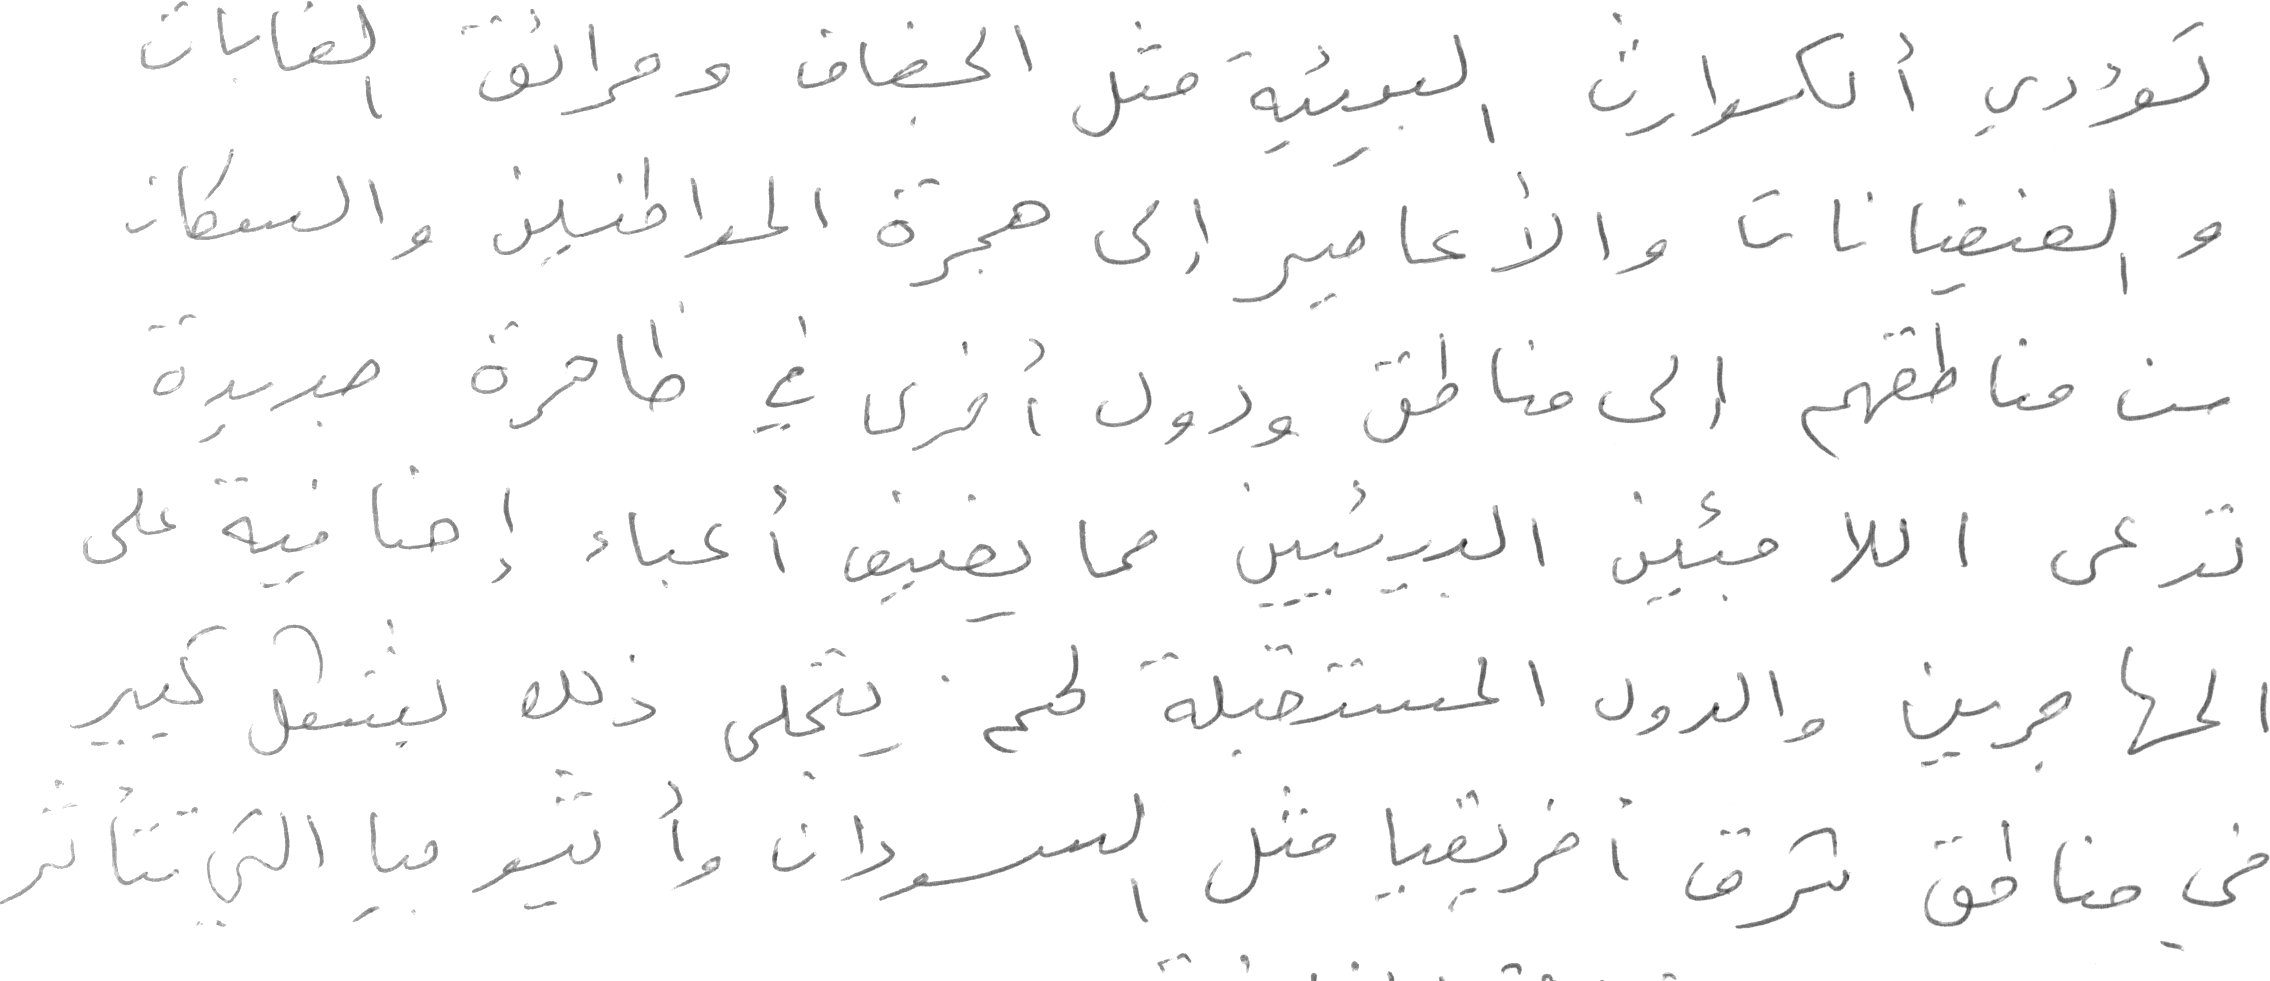 تؤدي الكوارث البيئية مثل الجفاف وحرائق الغابات
و الفيضانات والأعاصير إلى هجرة المواطنين والسكان
من مناطقهم إلى مناطق ودول أخرى في ظاهرة جديدة
تدعى اللاجئين البيئيين مما يضيف أعباء إضافية على
المهاجرين والدول المستقبلة لهم. يتجلى ذلك بشكل كبير
في مناطق شرق أفريقيا مثل السودان وأثيوبيا التي تتأثر